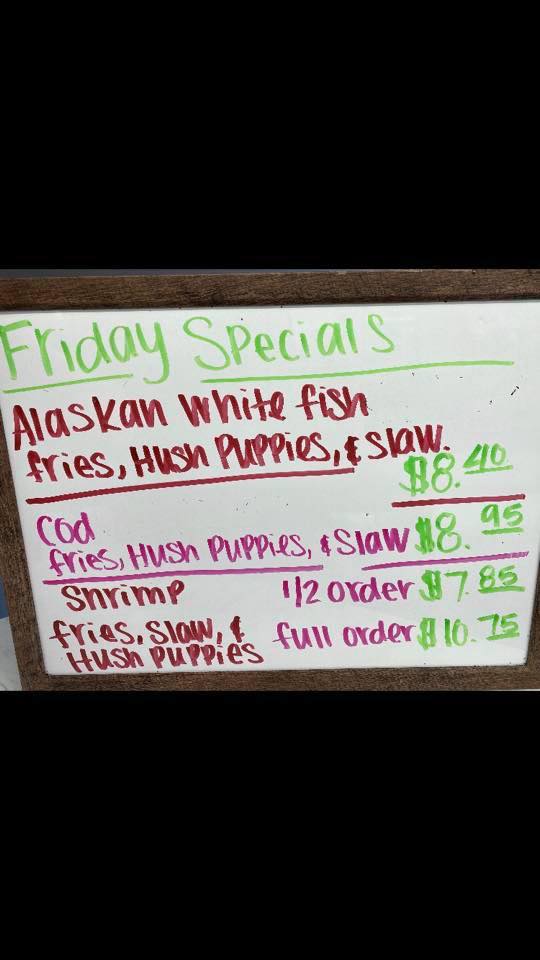 Friday Specials
Alaskan White fish
fries, Hush Puppies, & Slaw.
$8.40
Cod
fries, Hush Puppies, & Slaw $8.95
Shrimp 1/2 order $7.85
fries, Slaw, & full order $10.75
Hush Puppies